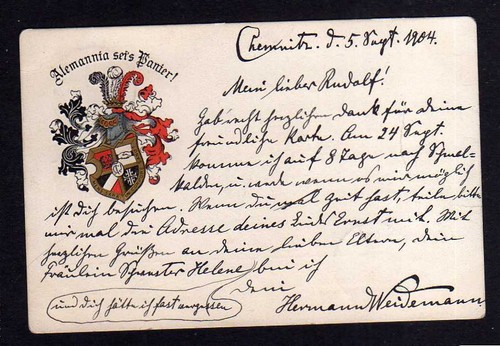 Alemannia sei's Panier!
Chemnitz. d. 5. Sept. 1904.
Mein lieber Rudolf!
Hab recht herzlichen Dank für deine
freundliche Karte. Am 24 Sept.
komme ich auf 8 Tage nach Schmal-
kalden, u. werde wenn es mir möglich
ist Dich besuchen. Wenn Du mal Zeit hast, teile bitte
mir mal die Adresse deines Ernst mit. Mit
herzlichen Grüßen an deine lieben Eltern, dein
Fräulein Schwester Helene bin ich
dein
Hermann Weidemann
und dich hätte ich fast vergessen